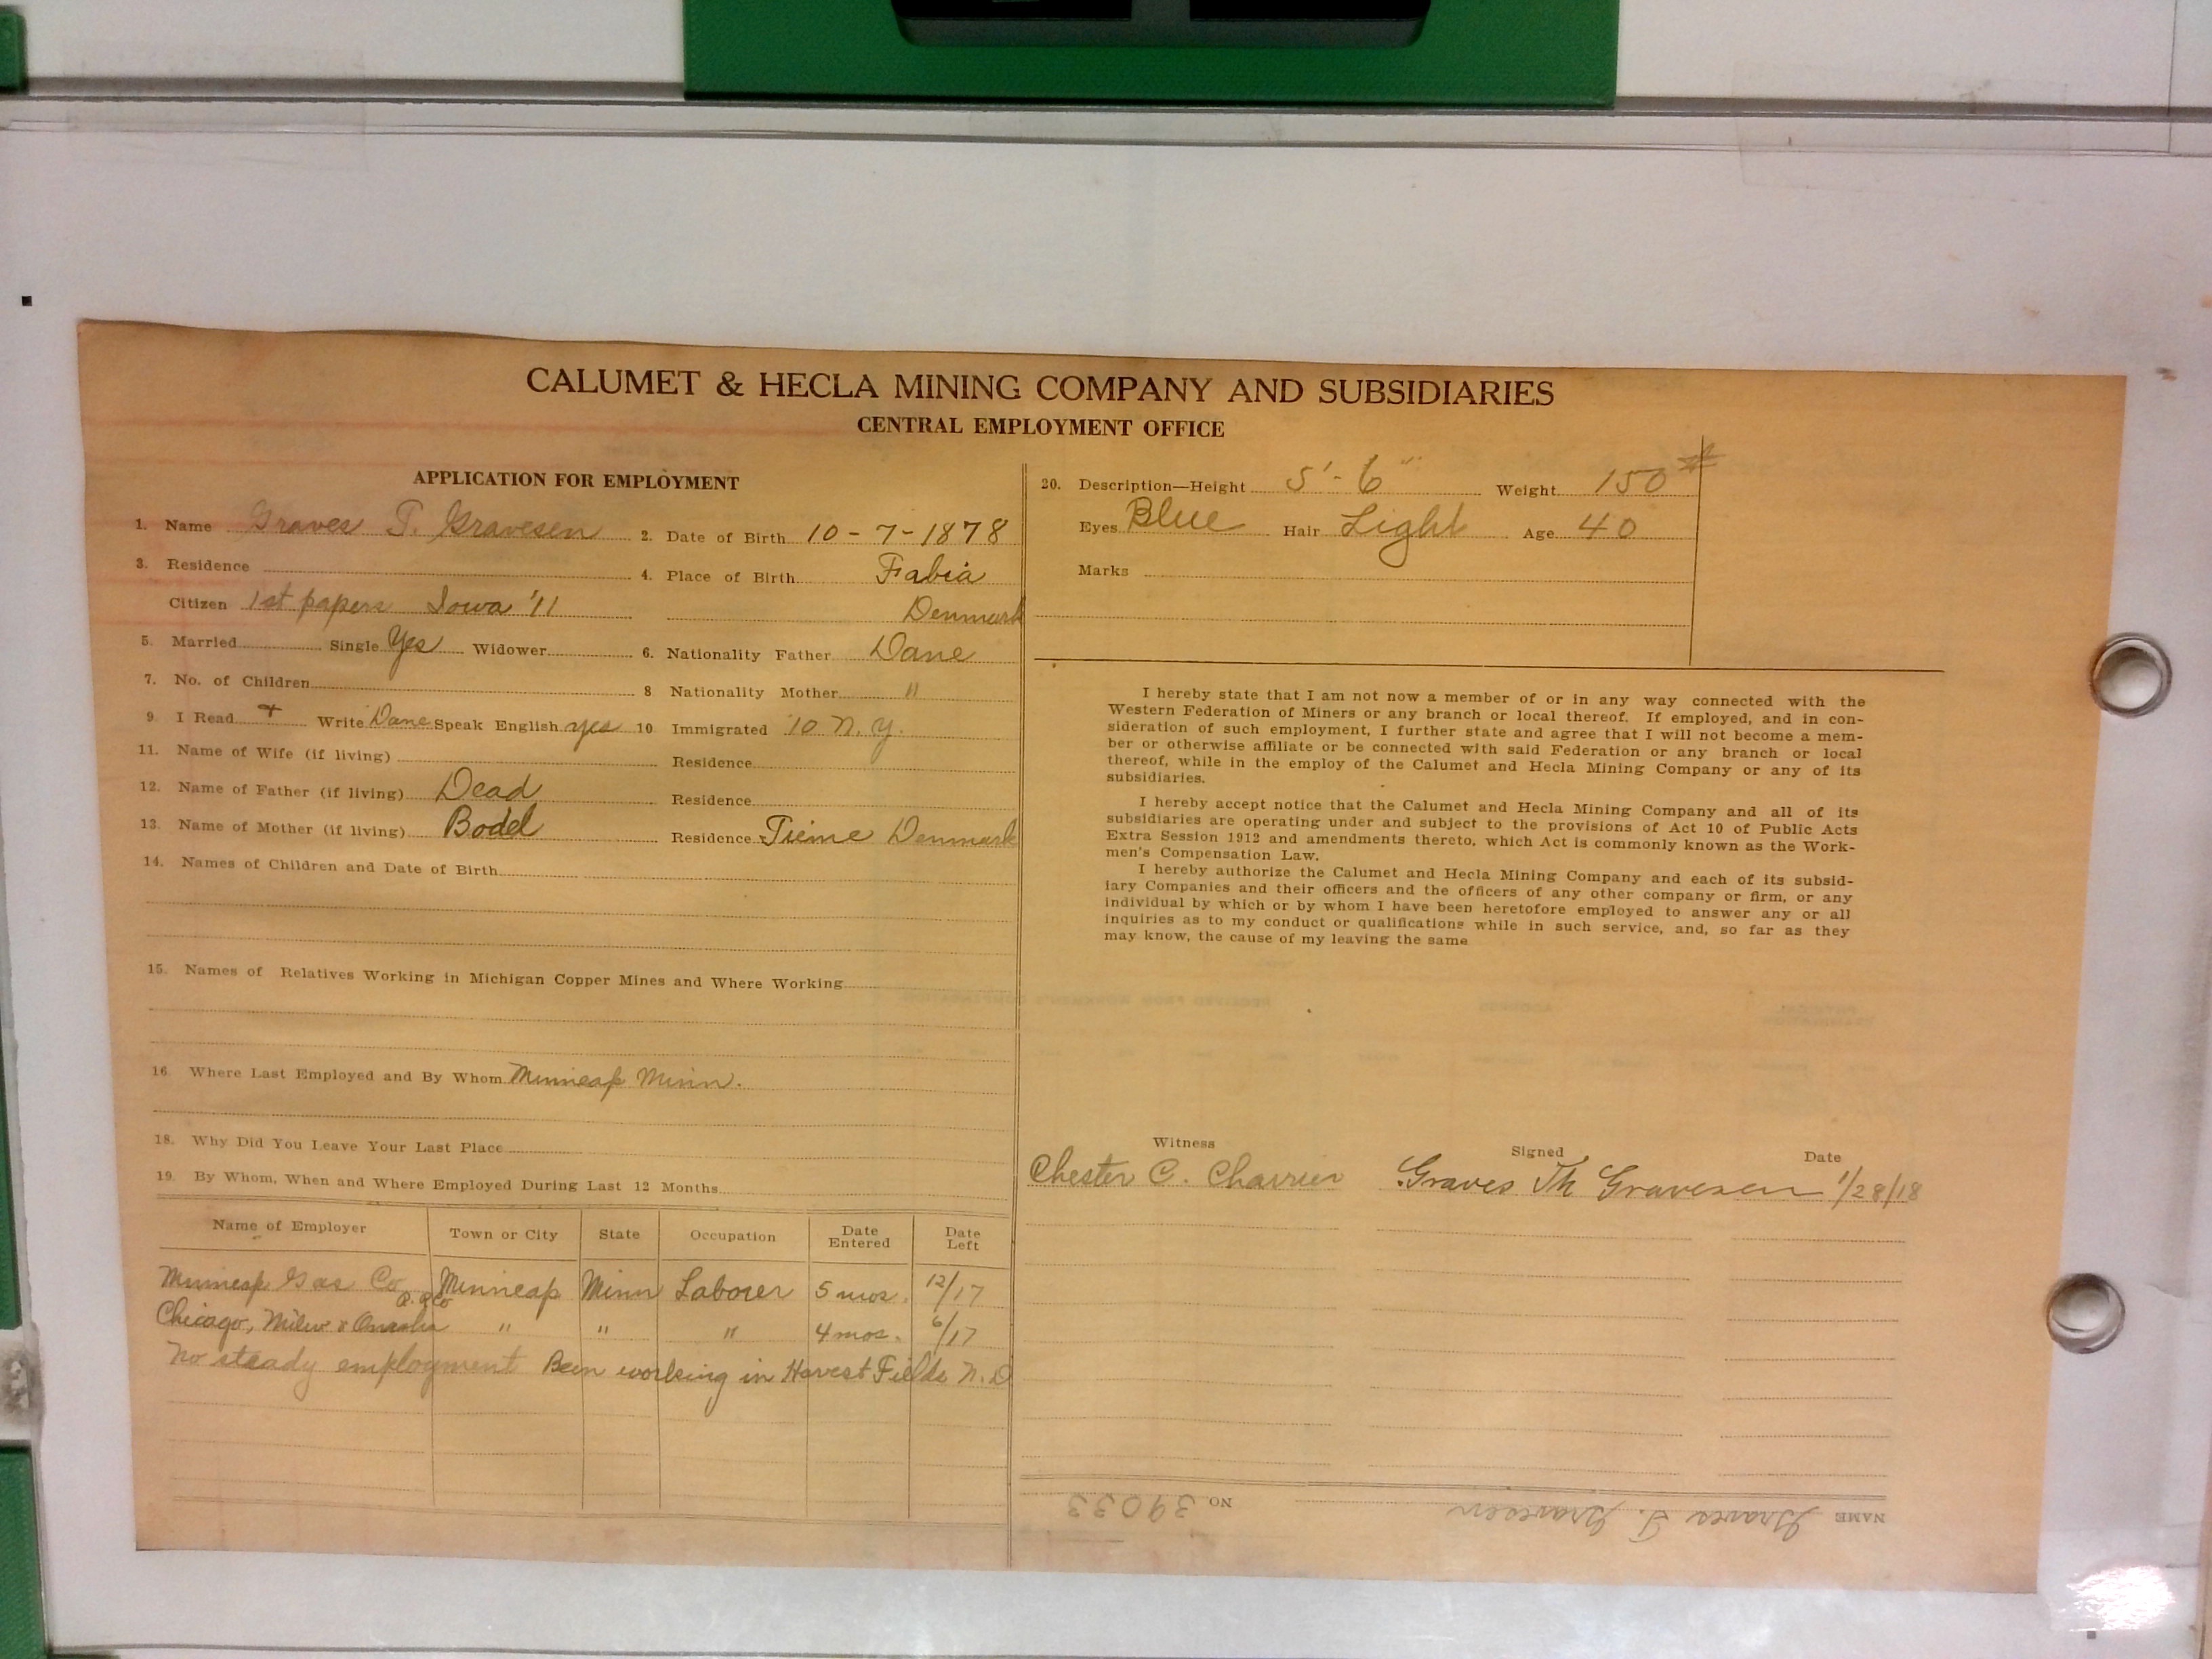 CALUMET & HECLA MINING COMPANY AND SUBSIDIARIES
CENTRAL EMPLOYMENT OFFICE
APPLICATION FOR EMPLOYMENT
1. Name Graves T. Gravesen 2. Date of Birth 10-7-1878
3. Residence 4. Place of Birth Fabia
Citizen 1st papers Iowa '11 Denmark
5. Married Single Yes Widower 6. Nationality Father Dane
7. No. of Children 8 Nationality Mother "
9 I Read + Write Dane Speak English yes 10 Immigrated '10 N.Y.
11. Name of Wife (if living) Residence
12. Name of Father (if living) Dead Residence
13. Name of Mother (if living) Bodel Residence Denmark
14. Names of Children and Date of Birth
15. Names of Relatives Working in Michigan Copper Mines and Where Working
16. Where Last Employed and By Whom Minneap Minn.
18. Why Did You Leave Your Last Place
19. By Whom, When and Where Employed During Last 12 Months
Name of Employer Town or City State Occupation Date Entered Date Left
Minneap Gas Co Minneap Minn Laborer 5 mos. 12/17
R. R Co
Chicago, Milw & Omaha " " " 4 mos. 6/17
No steady employment Been working in Harvest Fields N. D
20. Description—Height 5'-6" Weight 150#
Eyes Blue Hair Light Age 40
Marks
I hereby state that I am not now a member of or in any way connected with the
Western Federation of Miners or any branch or local thereof. If employed, and in con-
sideration of such employment, I further state and agree that I will not become a mem-
ber or otherwise affiliate or be connected with said Federation or any branch or local
thereof, while in the employ of the Calumet and Hecla Mining Company or any of its
subsidiaries.
I hereby accept notice that the Calumet and Hecla Mining Company and all of its
subsidiaries are operating under and subject to the provisions of Act 10 of Public Acts
Extra Session 1912 and amendments thereto, which Act is commonly known as the Work-
men's Compensation Law.
I hereby authorize the Calumet and Hecla Mining Company and each of its subsid-
iary Companies and their officers and the officers of any other company or firm, or any
individual by which or by whom I have been heretofore employed to answer any or all
inquiries as to my conduct or qualifications while in such service, and, so far as they
may know, the cause of my leaving the same
Witness Signed Date
Chester C. Charrier Graves Th Gravesen 1/28/18
NAME Graves T. Gravesen NO 39033